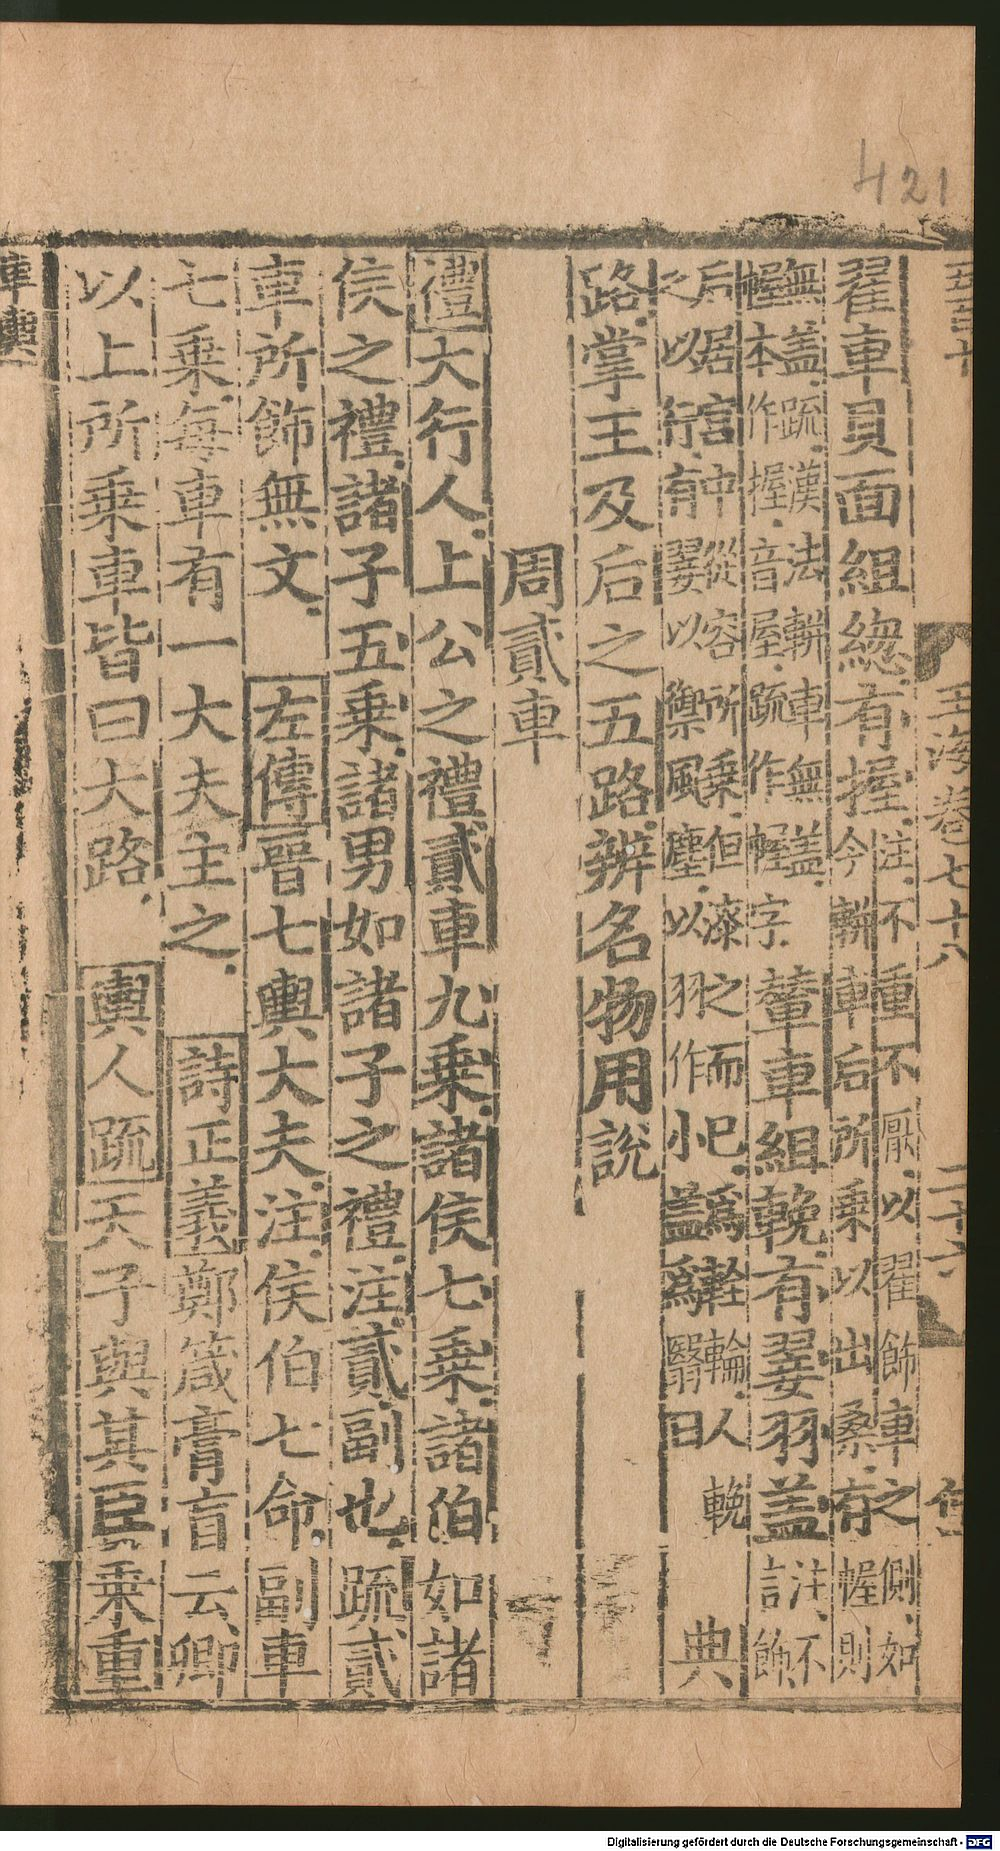 421
玉海卷七十八 二十六
翟車貝面組緫有握注不重不厭以翟飾車之側如今輧車后所乗以出桑有幄則
無盖疏漢法輧車無盖幄本作握音屋疏作幄字輦車組輓有翣羽盖注不言飾
后居宫中從容所乗但漆之而已爲輇輪人輓之以行有翣以禦風塵以羽作小盖爲翳日典
路掌王及后之五路辨名物用說
周貳車
禮大行人上公之禮貳車九乗諸侯七乗諸伯如諸
侯之禮諸子五乗諸男如諸子之禮注貳副也疏貳
車所飾無文 左傳晉七輿大夫注侯伯七命副車
七乗每車有一大夫主之 詩正義鄭箴膏肓云卿
以上所乗車皆曰大路 輿人疏天子與其臣乗重
車輿
Digitalisierung gefördert durch die Deutsche Forschungsgemeinschaft - DFG